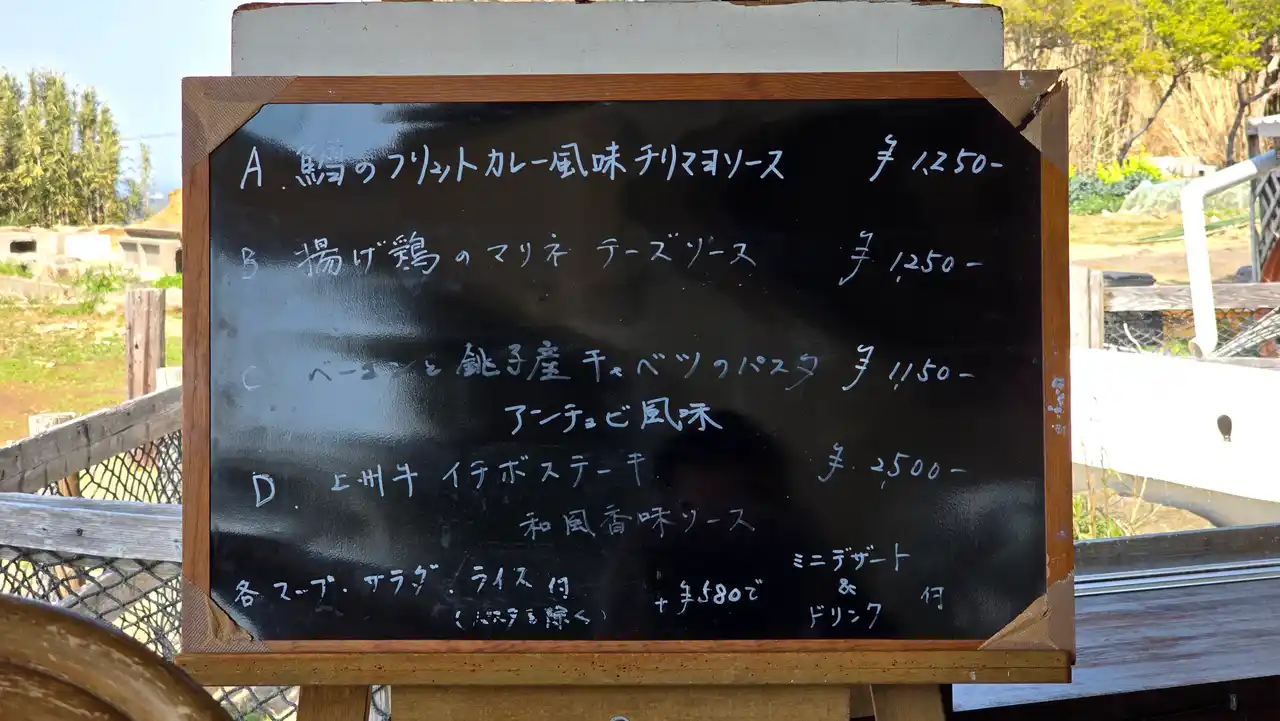 A. 鱈のフリットカレー風味チリマヨソース ¥1,250-
B 揚げ鶏のマリネ チーズソース ¥1,250-
C ベーコンと銚子産キャベツのパスタ ¥1,150-
アンチョビ風味
D. 上州牛 イチボステーキ ¥2,500-
和風香味ソース
各スープ・サラダ・ライス付
(パスタを除く)
+¥580で
ミニデザート
&
ドリンク
付